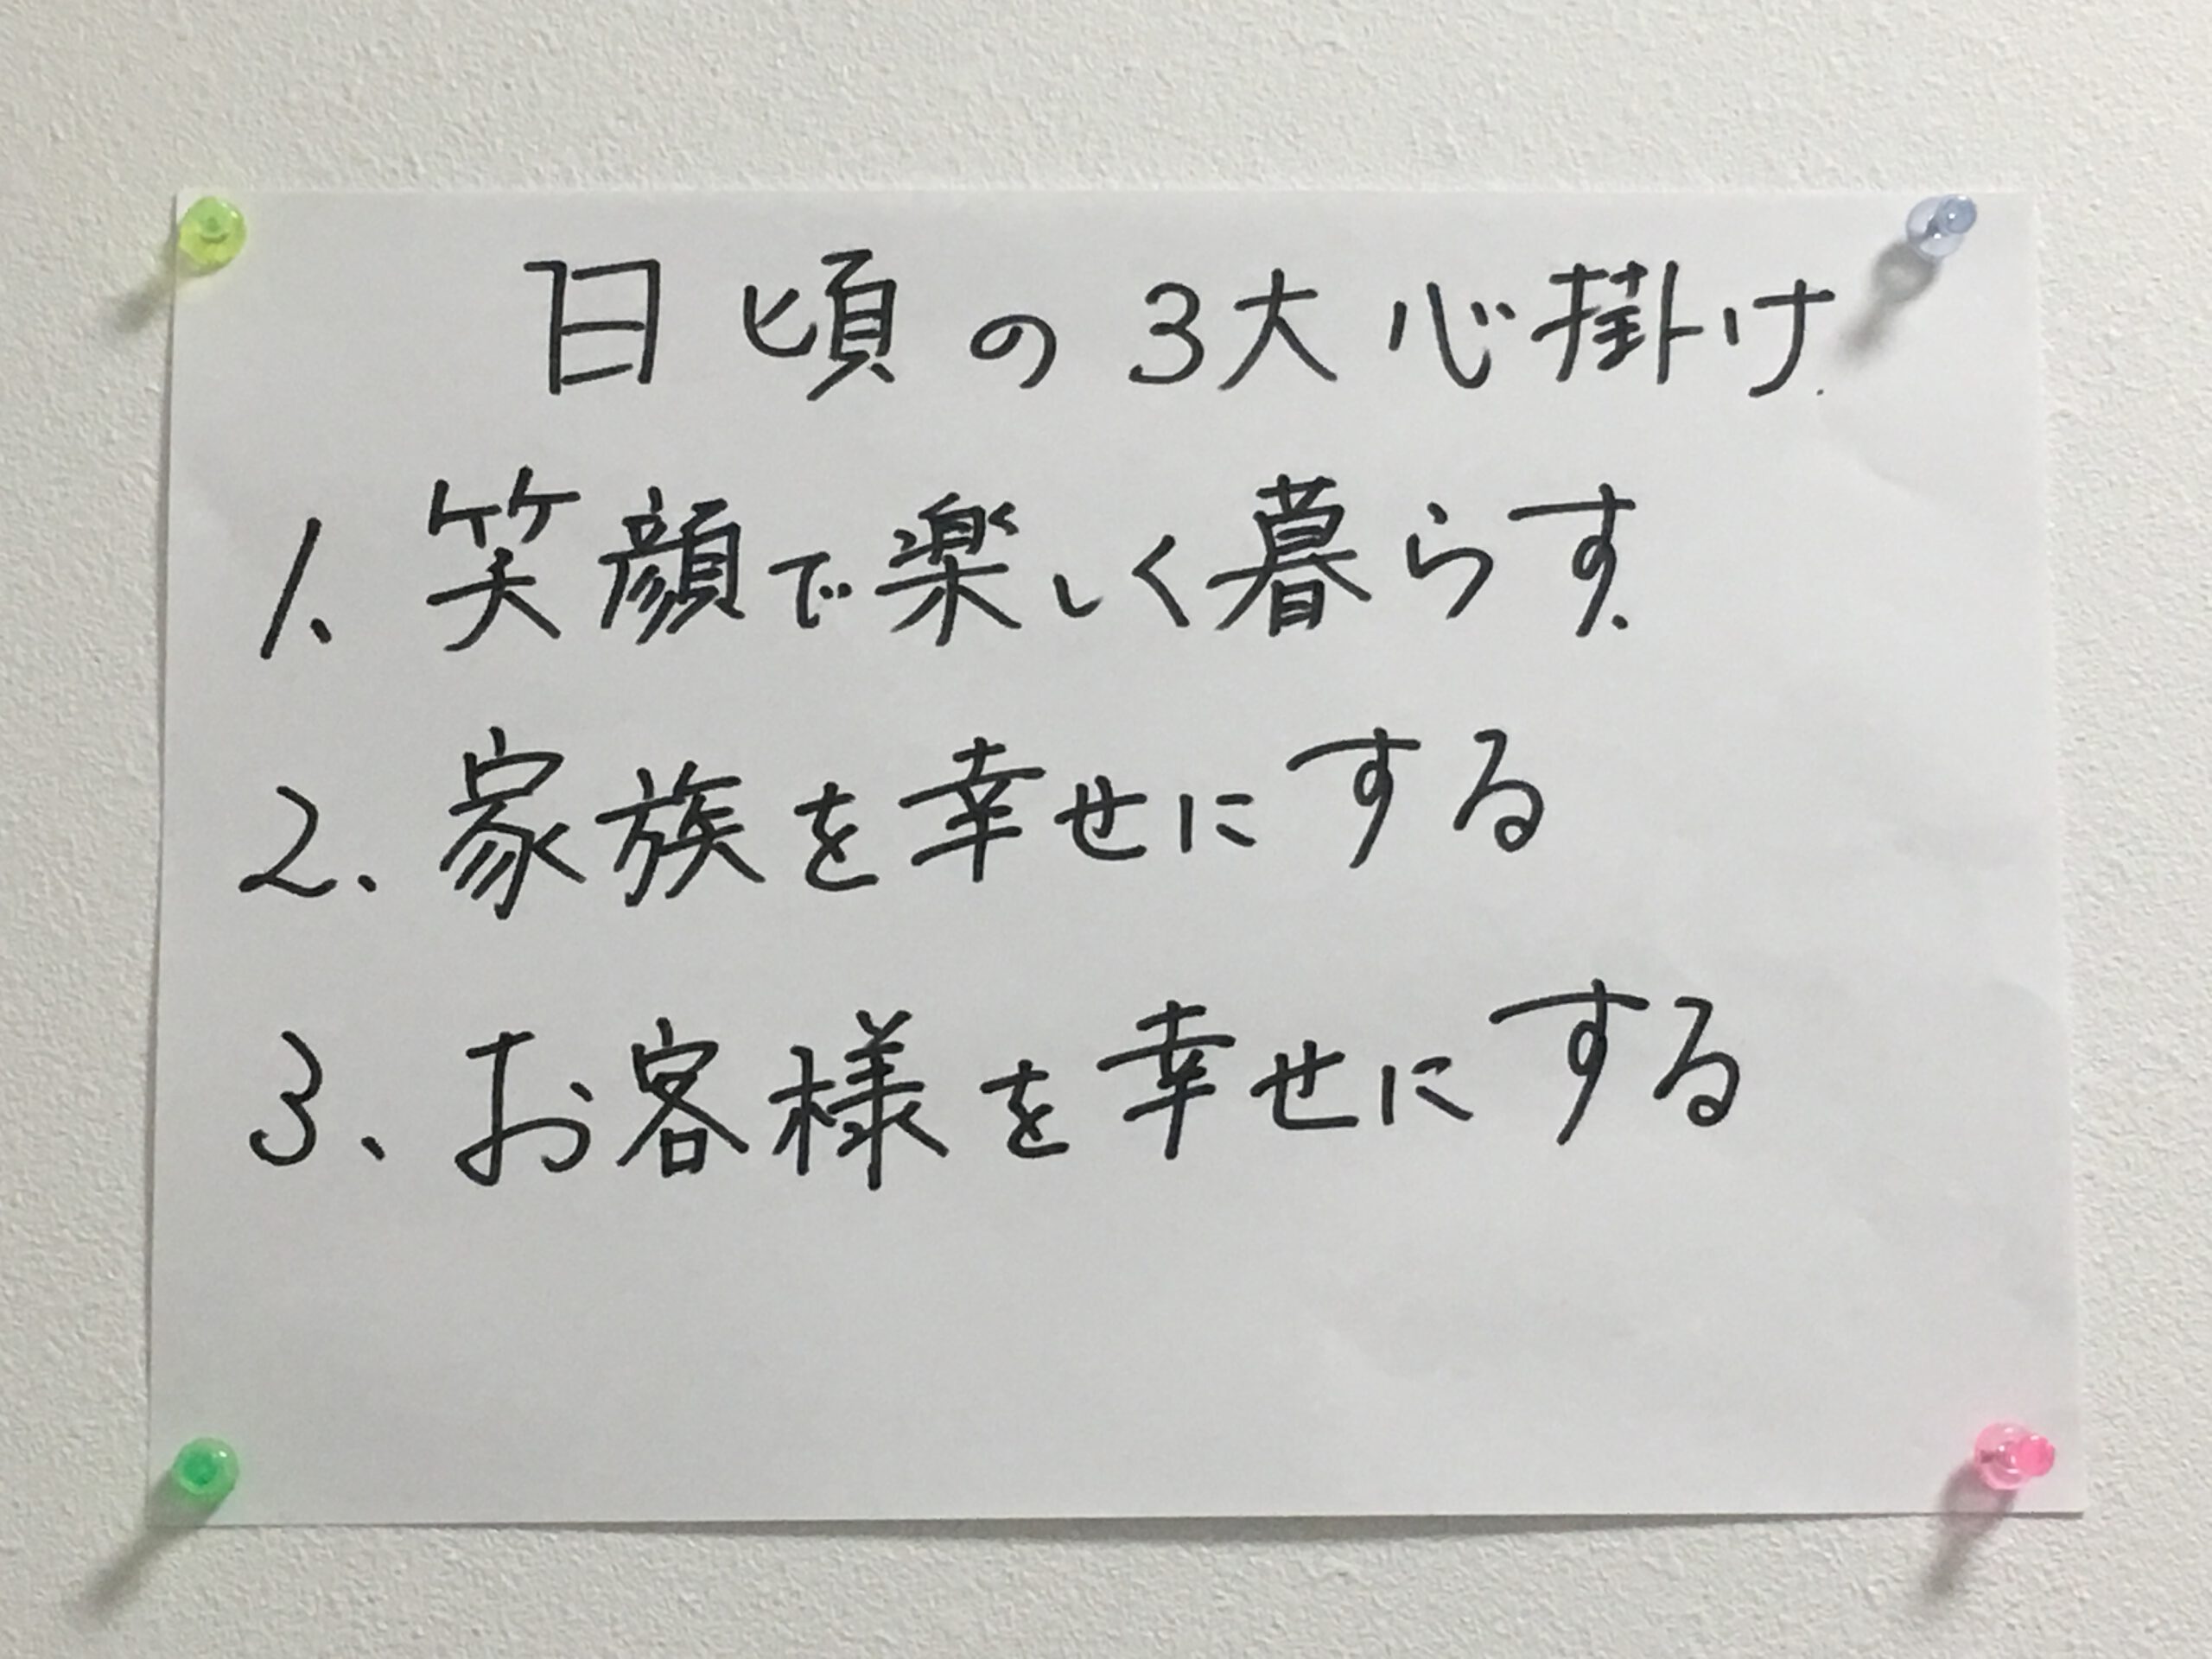 日頃の3大心掛け.
1、笑顔で楽しく暮らす.
2、家族を幸せにする
3、お客様を幸せにする